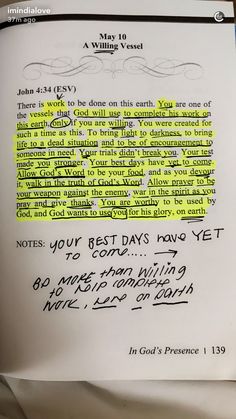 imindialove
37m ago
May 10
A Willing Vessel
John 4:34 (ESV)
There is work to be done on this earth. You are one of
the vessels that God will use to complete his work on
this earth, only if you are willing. You were created for
such a time as this. To bring light to darkness, to bring
life to a dead situation and to be of encouragement to
someone in need. Your trials didn't break you. Your test
made you stronger. Your best days have yet to come.
Allow God's Word to be your food, and as you devour
it, walk in the truth of God's Word. Allow prayer to be
your weapon against the enemy, war in the spirit as you
pray and give thanks. You are worthy to be used by
God, and God wants to use you for his glory, on earth.
NOTES: YOUR BEST DAYS HAVE YET
to come.....
BD MORE than Willing
to help complete
WORK, here on Earth
In God's Presence | 139